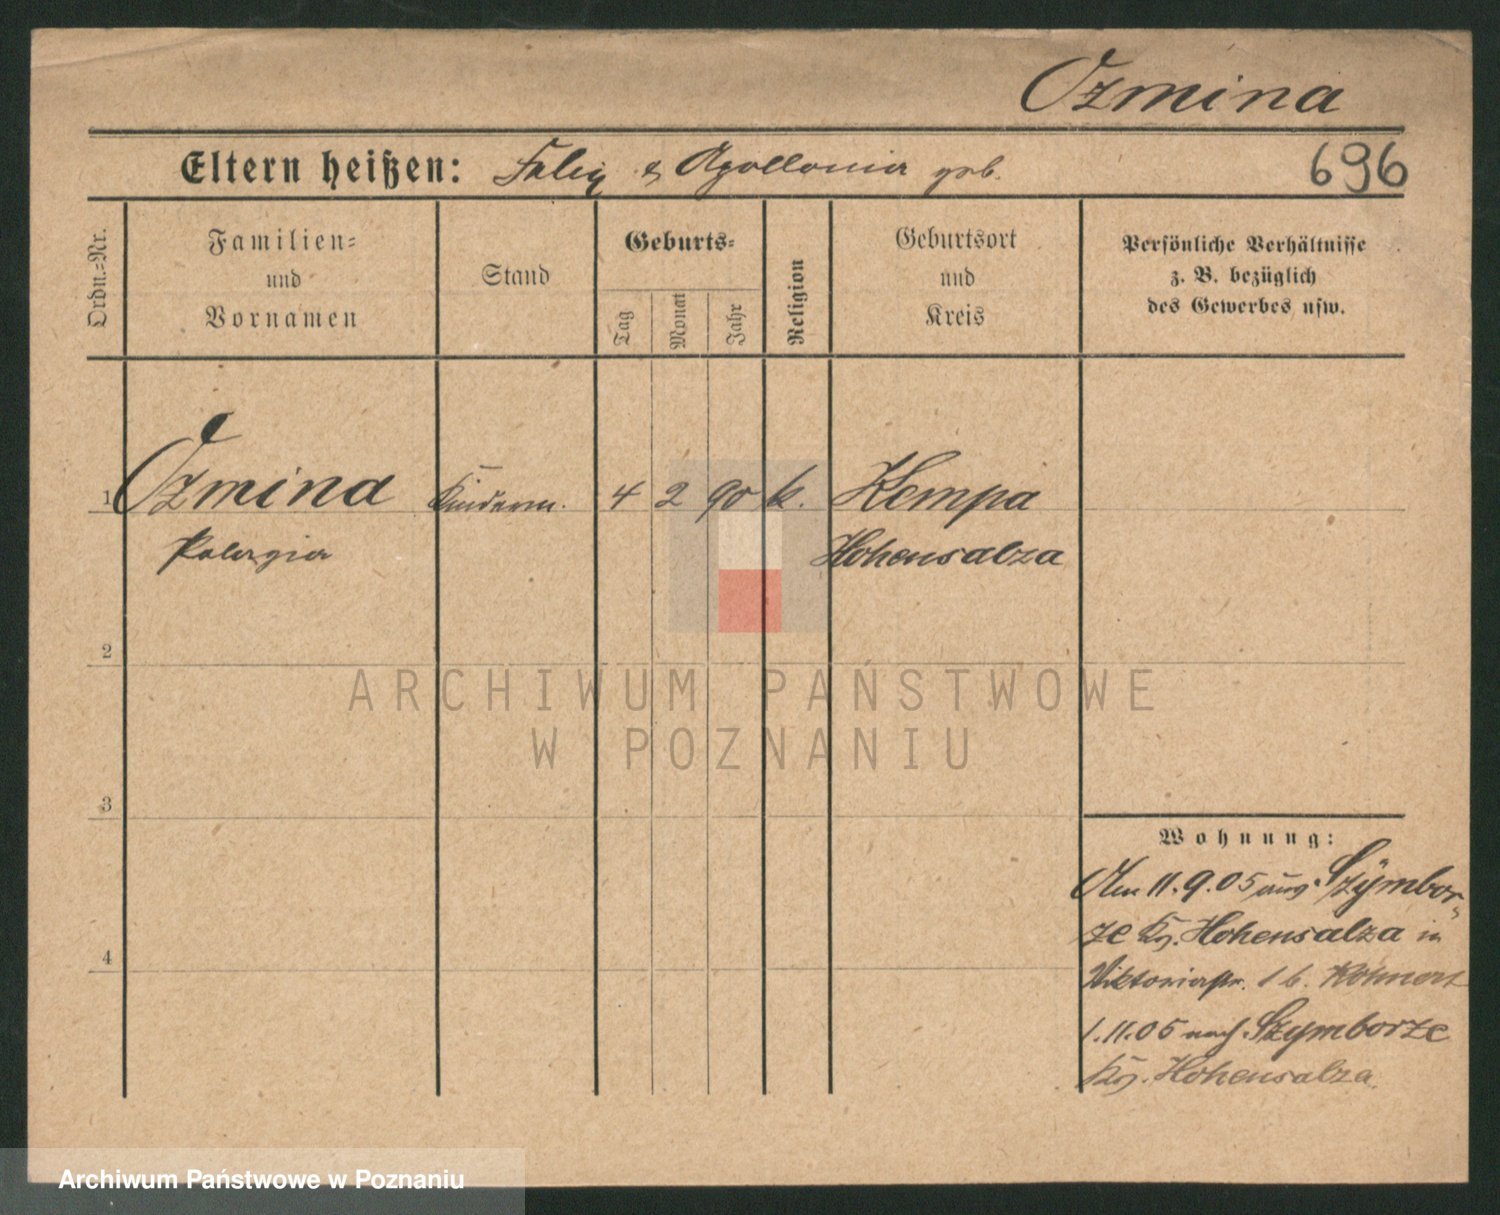 Ozmina
Eltern heißen: Felix & Apollonia geb.
696
Ordn.=Nr.
Familien=
und
Vornamen
Stand
Geburts=
Tag
Monat
Jahr
Religion
Geburtsort
und
Kreis
Persönliche Verhältnisse
z. B. bezüglich
des Gewerbes usw.
1 Ozmina Kinderm. 4 2 90 k. Kempa
Pelagia Hohensalza
2
ARCHIWUM PAŃSTWOWE
W POZNANIU
3
Wohnung:
Am 11.9.05 aus Szymbor-
ze Krs. Hohensalza in
4
Viktoriastr. 1 b.
1.11.05 nach Szymborze
Krs. Hohensalza
Archiwum Państwowe w Poznaniu